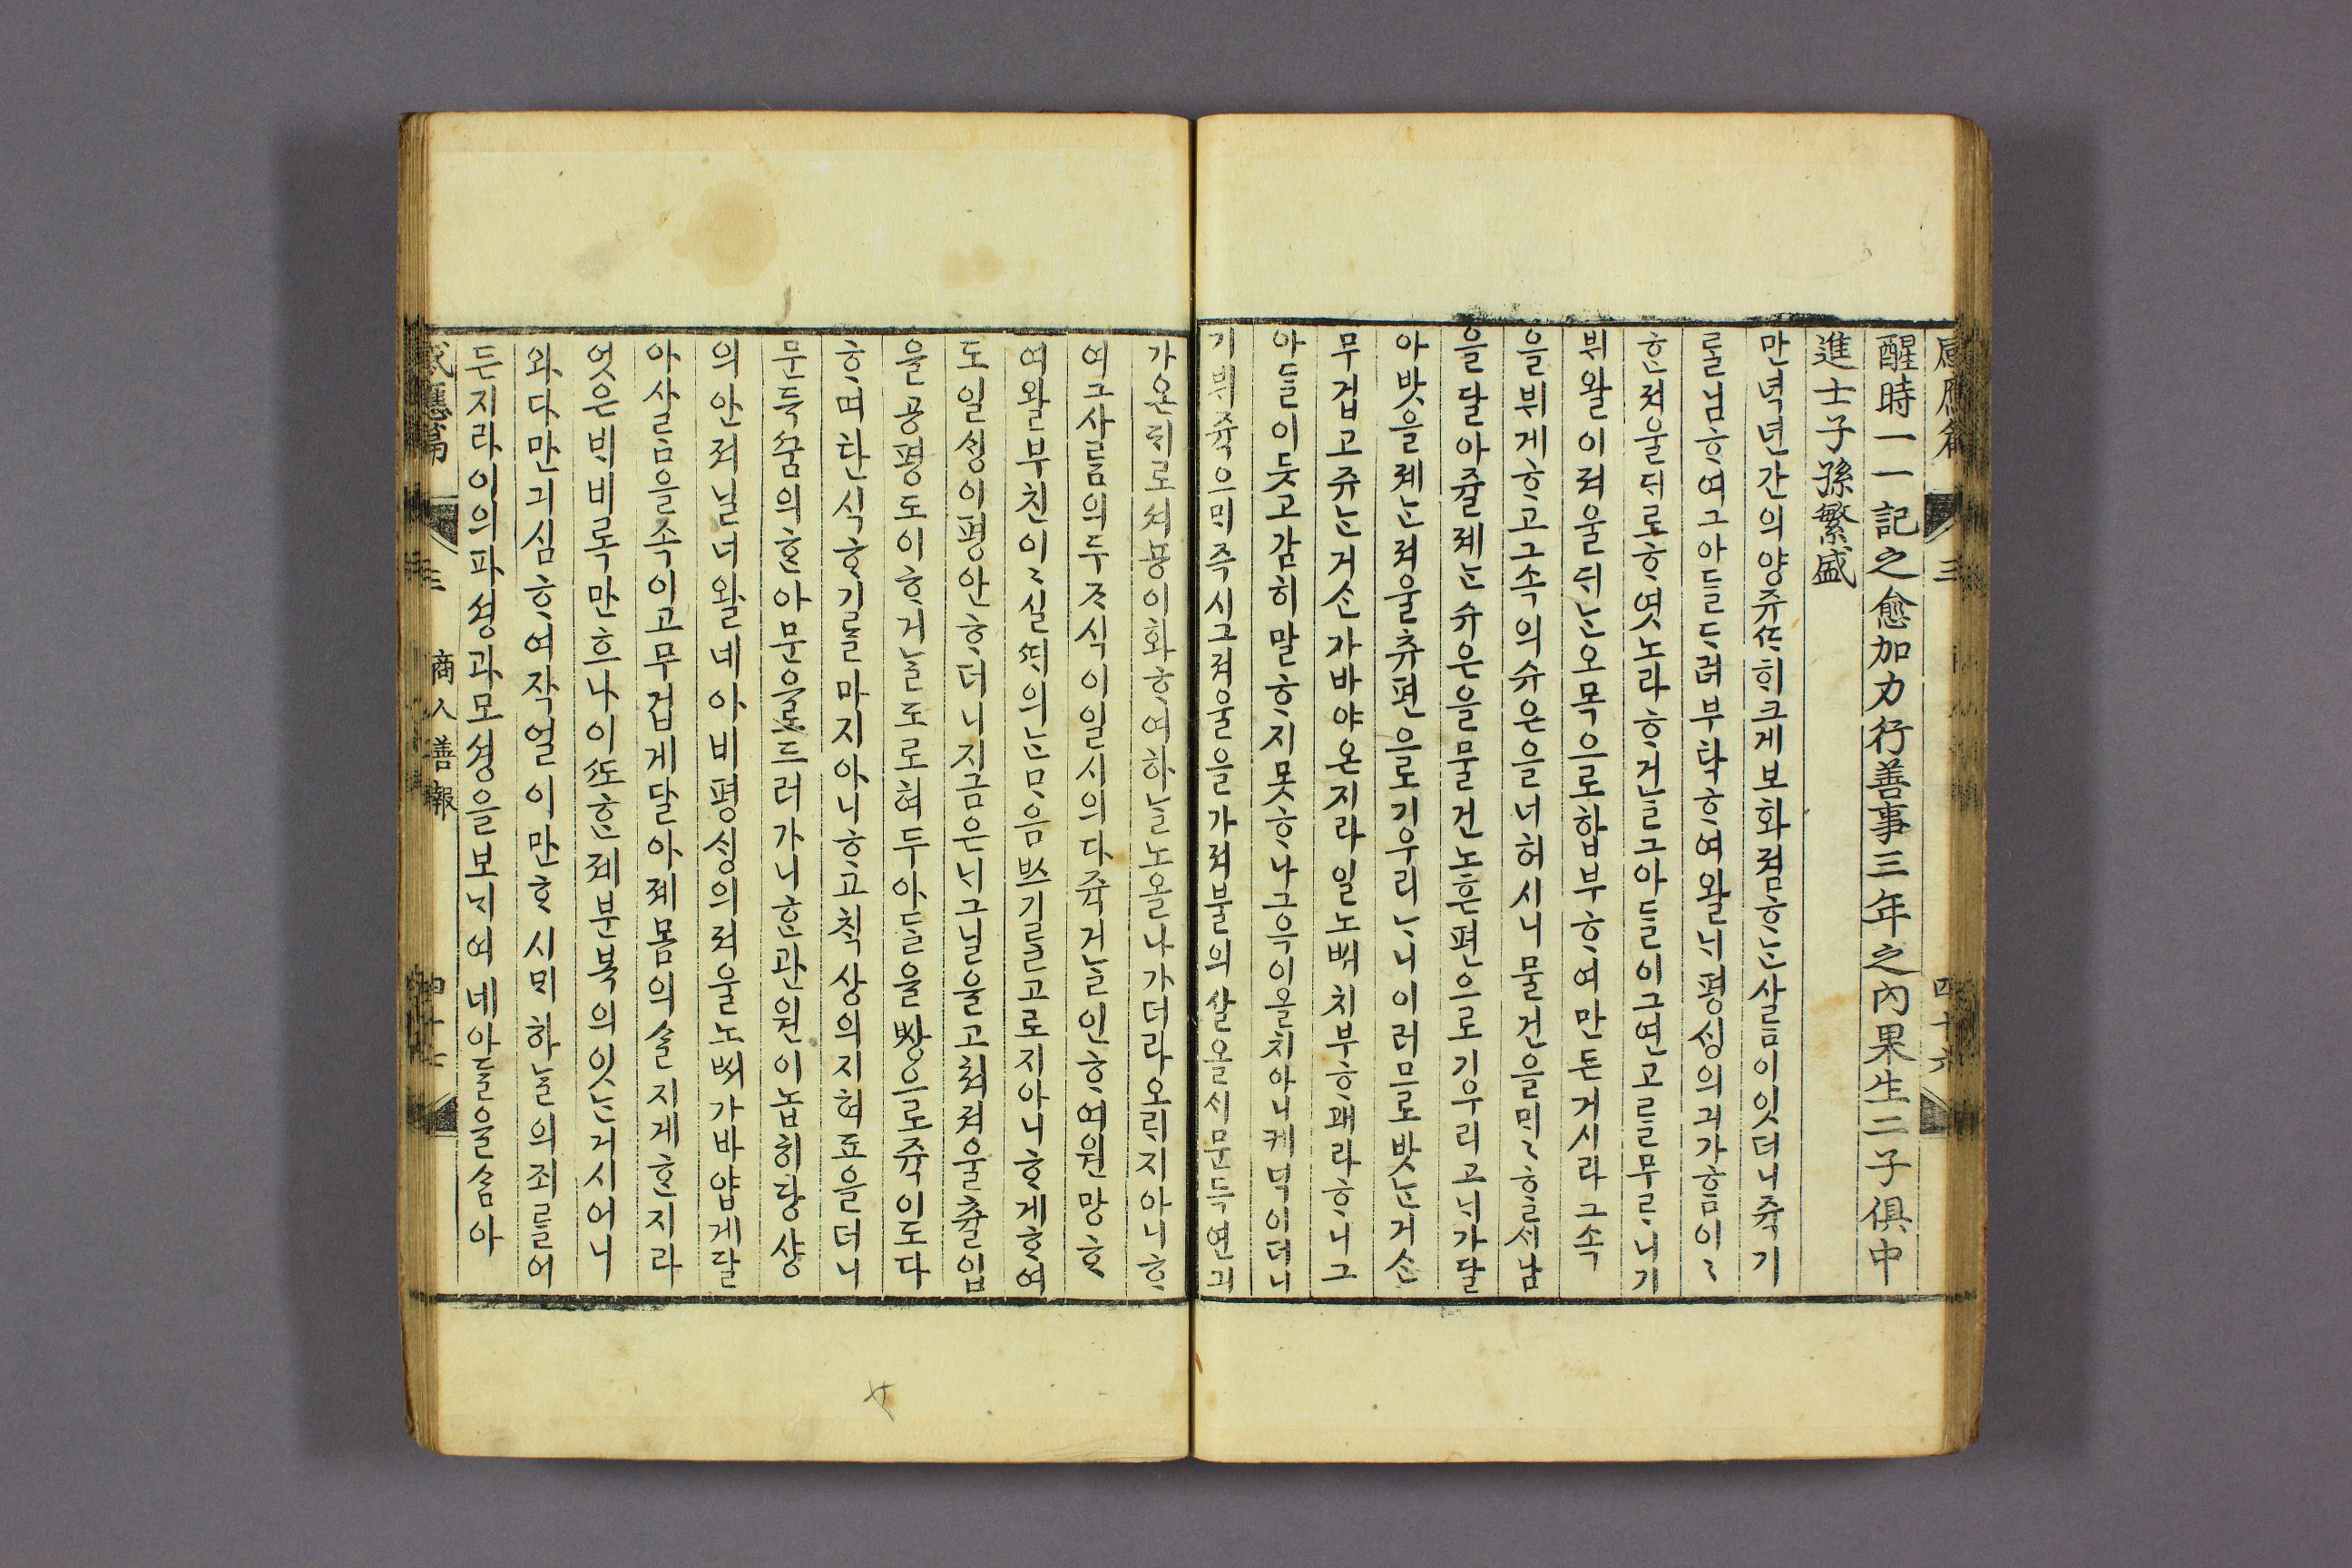 感應篇 三 四十六
醒時一一記之愈加力行善事三年之內果生二子俱中
進士子孫繁盛
만녁년간의양쥬ᄯᅡ히크게보화졈ᄒᆞᄂᆞᆫ사ᄅᆞᆷ이잇더니쥭기
ᄅᆞᆯ님ᄒᆞ여그아ᄃᆞᆯᄃᆞ려부탁ᄒᆞ여왈ᄂᆡ평ᄉᆡᆼ의긔가ᄒᆞᆷ이〻
ᄒᆞᆫ져울ᄃᆡ로ᄒᆞ엿노라ᄒᆞ거ᄂᆞᆯ그아ᄃᆞᆯ이그연고ᄅᆞᆯ무ᄅᆞ니기
뷔왈이져울ᄃᆡᄂᆞᆫ오목으로합부ᄒᆞ여만든거시라그속
을뷔게ᄒᆞ고그속의슈은을너허시니물건을ᄆᆡ〻ᄒᆞᆯ세남
을달아쥴졔ᄂᆞᆫ슈은을물건노흔편으로기우리고ᄂᆡ가달
아밧을졔ᄂᆞᆫ져울츄편으로기우리ᄂᆞ니이러므로밧ᄂᆞᆫ거ᄉᆞᆫ
무겁고쥬ᄂᆞᆫ거ᄉᆞᆫ가바야온지라일노ᄡᅥ치부ᄒᆞᆫ배라ᄒᆞ니그
아ᄃᆞᆯ이듯고감히말ᄒᆞ지못ᄒᆞ나그윽이올치아니케넉이더니
기뷔쥭으ᄆᆡ즉시그져울을가져불의살올ᄉᆡ문득연긔
가온ᄃᆡ로셔뇽이화ᄒᆞ여하ᄂᆞᆯ노올나가더라오ᄅᆡ지아니ᄒᆞ
여그사ᄅᆞᆷ의두ᄌᆞ식이일시의다쥭거ᄂᆞᆯ인ᄒᆞ여원망ᄒᆞ
여왈부친이〻실ᄶᆡ의ᄂᆞᆫᄆᆞ음ᄡᅳ기ᄅᆞᆯ고로지아니ᄒᆞ게ᄒᆞ여
도일ᄉᆡᆼ이평안ᄒᆞ더니지금은ᄂᆡ그ᄂᆞᆯ을고쳐져울쥴임
을공평도이ᄒᆞ거ᄂᆞᆯ도로혀두아ᄃᆞᆯ을ᄡᅡᆼ으로쥭이도다
ᄒᆞ며탄식ᄒᆞ기ᄅᆞᆯ마지아니ᄒᆞ고ᄎᆡᆨ상의지혀조을더니
문득ᄭᅮᆷ의ᄒᆞᆫ아문으로드러가니ᄒᆞᆫ관원이놉히당샹
의안져닐너왈네아비평ᄉᆡᆼ의져울노ᄡᅥ가바얍게달
아사ᄅᆞᆷ을속이고무겁게달아졔몸의ᄉᆞᆯ지게ᄒᆞᆫ지라
엇은ᄇᆡ비록만흐나이ᄯᅩᄒᆞᆫ졔분복의잇ᄂᆞᆫ거시어니
와다만긔심ᄒᆞ여작얼이만ᄒᆞ시ᄆᆡ하ᄂᆞᆯ의죄ᄅᆞᆯ어
든지라이의파셩과모셩을보ᄂᆡ여네아ᄃᆞᆯ을ᄉᆞᆷ아
感應篇 三 商人善報